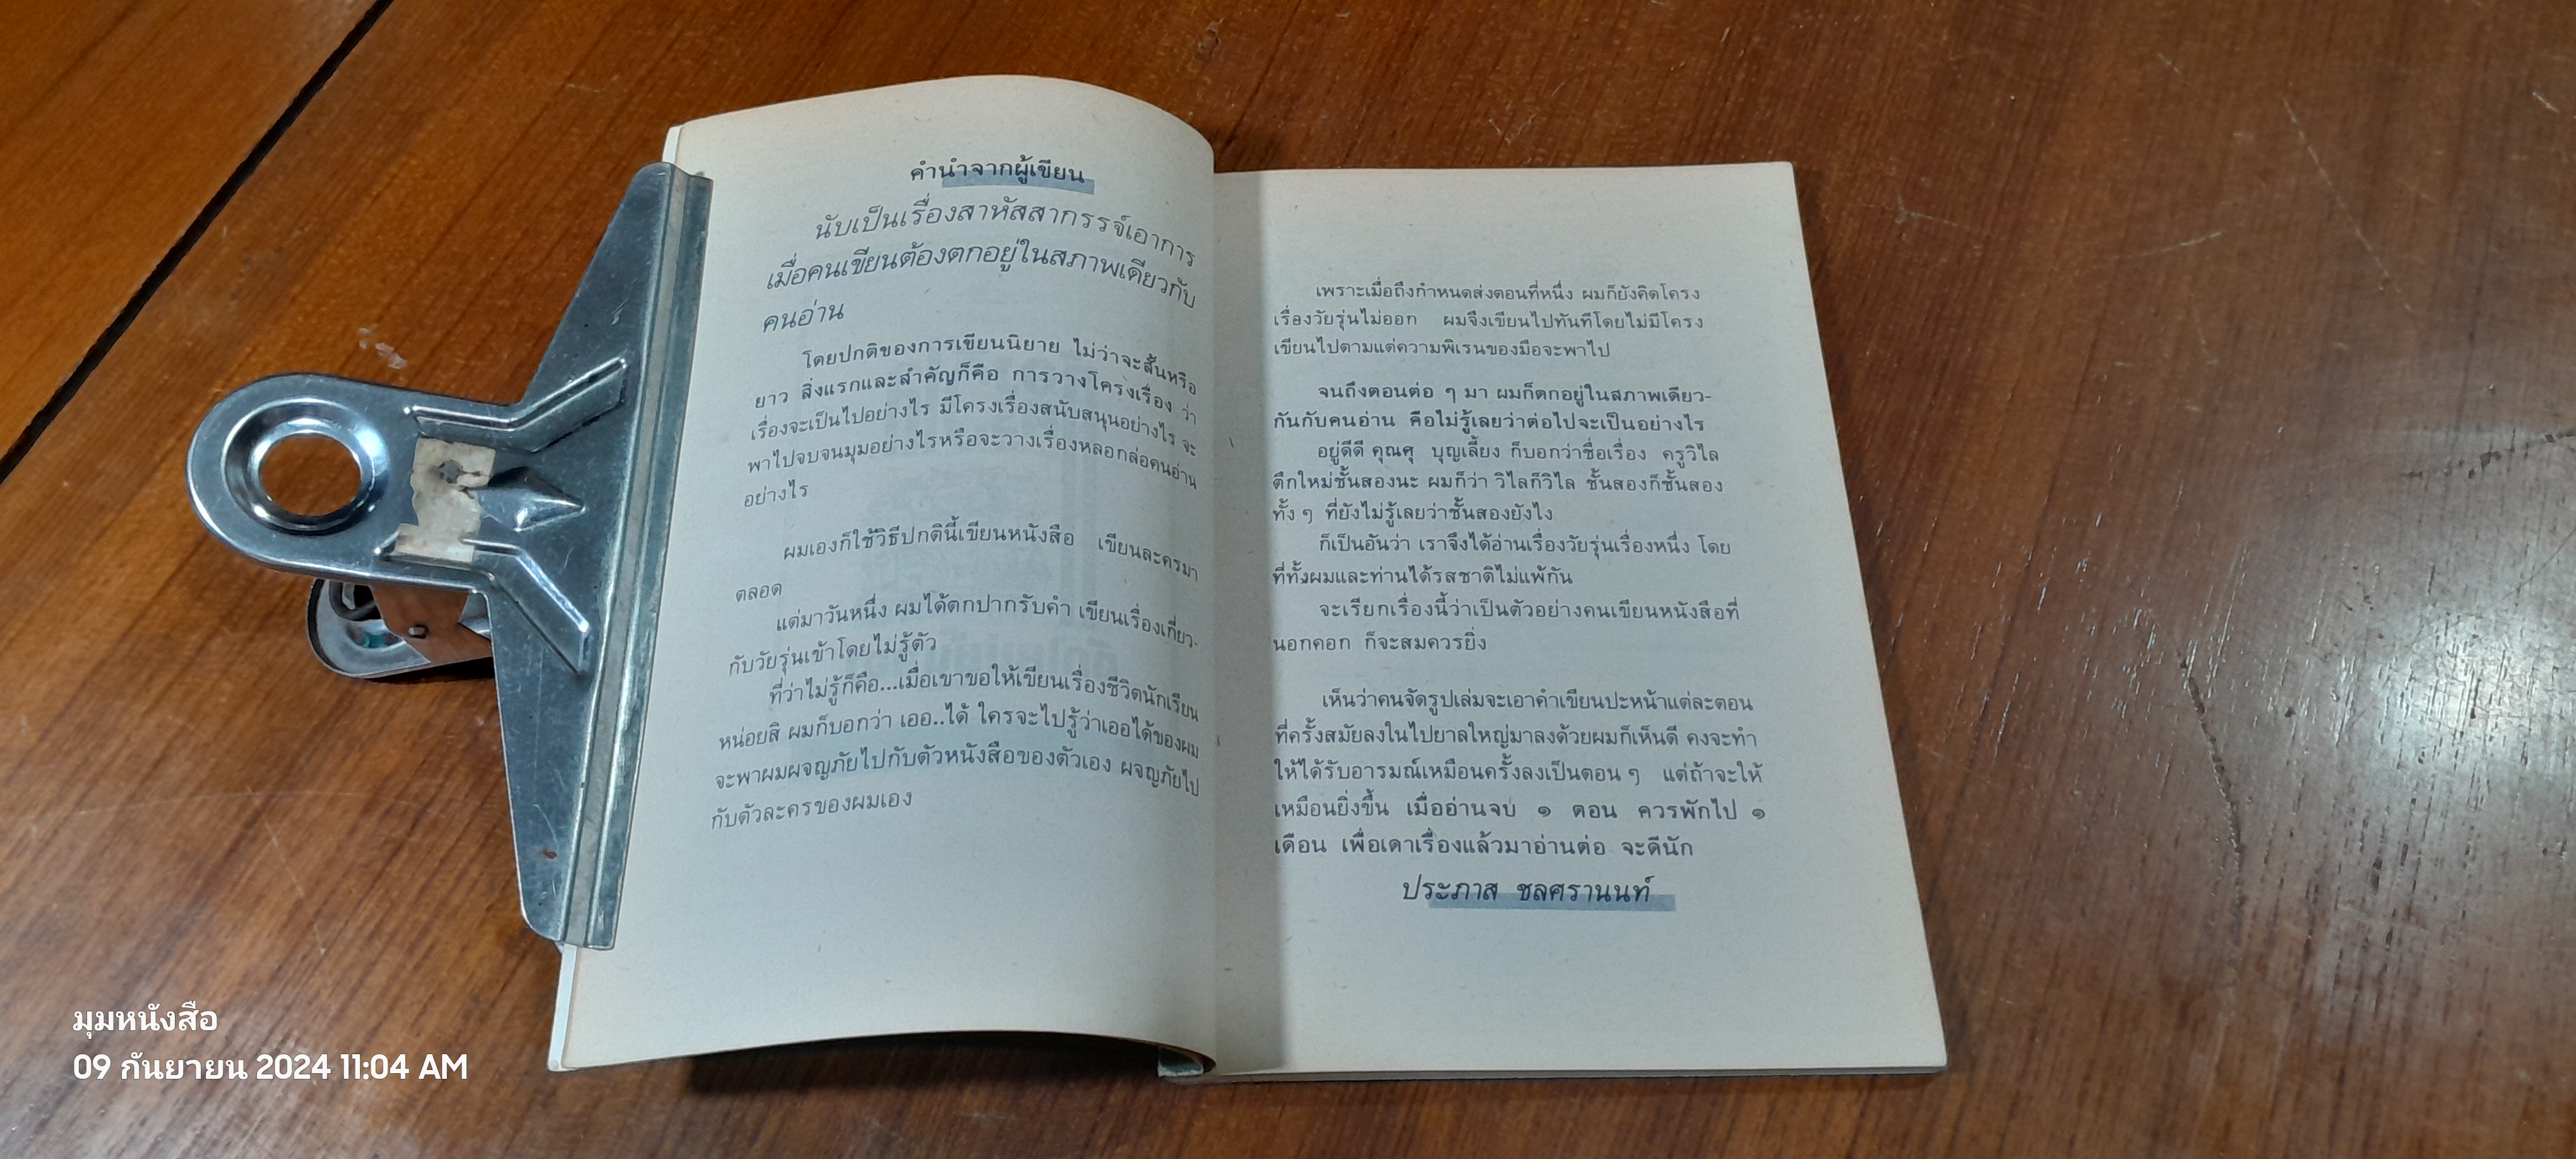 คำนำจากผู้เขียน
นับเป็นเรื่องสาหัสสากรรจ์เอาการ
เมื่อคนเขียนต้องตกอยู่ในสภาพเดียวกับ
คนอ่าน
โดยปกติของการเขียนนิยาย ไม่ว่าจะสั้นหรือ
ยาว สิ่งแรกและสำคัญก็คือ การวางโครงเรื่อง ว่า
เรื่องจะเป็นไปอย่างไร มีโครงเรื่องสนับสนุนอย่างไร จะ
พาไปจบจนมุมอย่างไรหรือจะวางเรื่องหลอกล่อคนอ่าน
อย่างไร
ผมเองก็ใช้วิธีปกตินี้เขียนหนังสือ เขียนละครมา
ตลอด
แต่มาวันหนึ่ง ผมได้ตกปากรับคำ เขียนเรื่องเกี่ยว-
กับวัยรุ่นเข้าโดยไม่รู้ตัว
ที่ว่าไม่รู้ก็คือ...เมื่อเขาขอให้เขียนเรื่องชีวิตนักเรียน
หน่อยสิ ผมก็บอกว่า เออ..ได้ ใครจะไปรู้ว่าเออได้ของผม
จะพาผมผจญภัยไปกับตัวหนังสือของตัวเอง ผจญภัยไป
กับตัวละครของผมเอง
เพราะเมื่อถึงกำหนดส่งตอนที่หนึ่ง ผมก็ยังคิดโครง
เรื่องวัยรุ่นไม่ออก ผมจึงเขียนไปทันทีโดยไม่มีโครง
เขียนไปตามแต่ความพิเรนของมือจะพาไป
จนถึงตอนต่อ ๆ มา ผมก็ตกอยู่ในสภาพเดียว-
กันกับคนอ่าน คือไม่รู้เลยว่าต่อไปจะเป็นอย่างไร
อยู่ดีดี คุณศุ บุญเลี้ยง ก็บอกว่าชื่อเรื่อง ครูวิไล
ตึกใหม่ชั้นสองนะ ผมก็ว่า วิไลก็วิไล ชั้นสองก็ชั้นสอง
ทั้ง ๆ ที่ยังไม่รู้เลยว่าชั้นสองยังไง
ก็เป็นอันว่า เราจึงได้อ่านเรื่องวัยรุ่นเรื่องหนึ่ง โดย
ที่ทั้งผมและท่านได้รสชาติไม่แพ้กัน
จะเรียกเรื่องนี้ว่าเป็นตัวอย่างคนเขียนหนังสือที่
นอกคอก ก็จะสมควรยิ่ง
เห็นว่าคนจัดรูปเล่มจะเอาคำเขียนปะหน้าแต่ละตอน
ที่ครั้งสมัยลงในไปยาลใหญ่มาลงด้วยผมก็เห็นดี คงจะทำ
ให้ได้รับอารมณ์เหมือนครั้งลงเป็นตอน ๆ แต่ถ้าจะให้
เหมือนยิ่งขึ้น เมื่ออ่านจบ ๑ ตอน ควรพักไป ๑
เดือน เพื่อเดาเรื่องแล้วมาอ่านต่อ จะดีนัก
ประภาส ชลศรานนท์
มุมหนังสือ
09 กันยายน 2024 11:04 AM